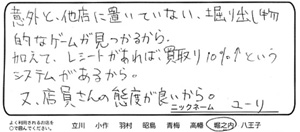 意外と、他店に置いていない、堀り出し物
的なゲームが見つかるから。
加えて、レシートがあれば、買取り10%↑という
システムがあるから。
又、店員さんの態度が良いから。
ニックネーム ユーリ
よく利用されるお店を
○で囲んでください。 立川 小作 羽村 昭島 青梅 高幡 堀之内 八王子